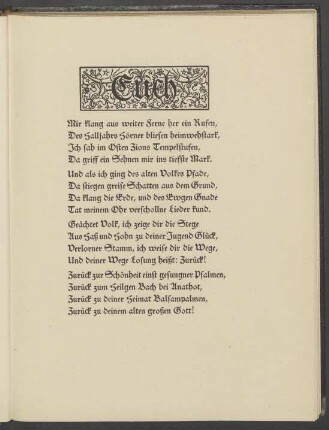 Euch
Mir klang aus weiter Ferne her ein Rufen,
Des Halljahrs Hörner bliesen heimwehstark,
Ich sah im Osten Zions Tempelstufen,
Da griff ein Sehnen mir ins tiefste Mark.
Und als ich ging des alten Volkes Pfade,
Da stiegen greise Schatten aus dem Grund,
Da klang die Erde, und des Ewgen Gnade
Tat meinem Ohr verschollne Lieder kund.
Geächtet Volk, ich zeige dir die Stege
Aus Haß und Hohn zu deiner Jugend Glück,
Verlorner Stamm, ich weise dir die Wege,
Und deiner Wege Losung heißt: Zurück!
Zurück zur Schönheit einst gesungner Psalmen,
Zurück zum Heilgen Bach bei Anathot,
Zurück zu deiner Heimat Balsampalmen,
Zurück zu deinem alten großen Gott!